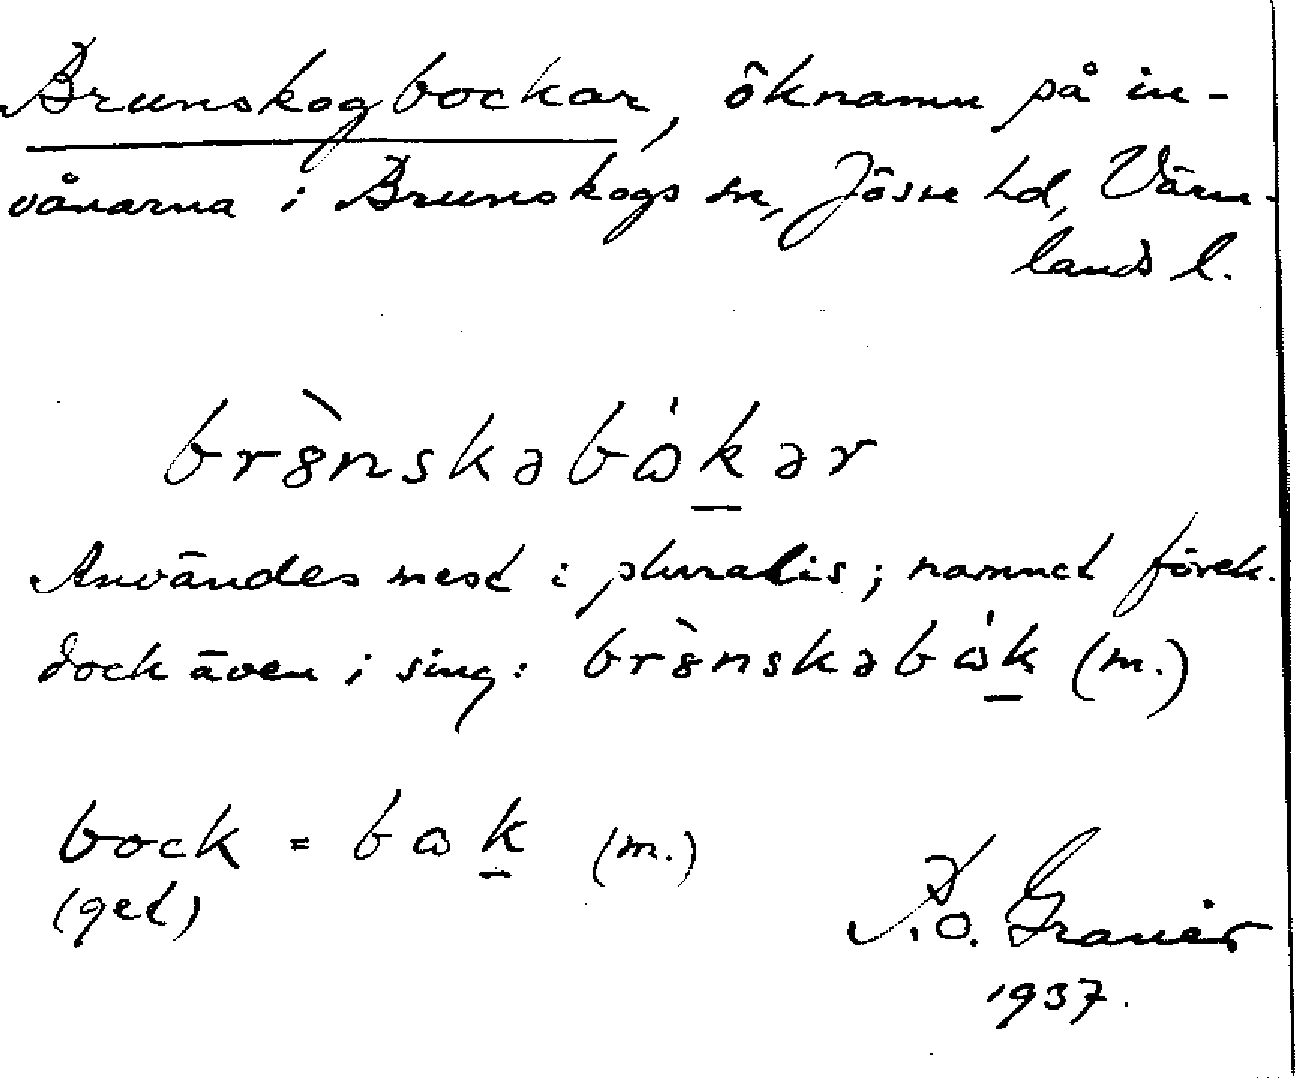 Brunskogbockar, öknamn på in-
vånarna i Brunskogs sn, Jösse hd, Värm-
lands l.
br8̀nskəbɷ́k̲ər
Användes mest i pluralis; namnet förek.
dock även i sing: br8̀nskəbɷ́k̲ (m.)
bock = bɷk̲ (m.)
(get)
1937.